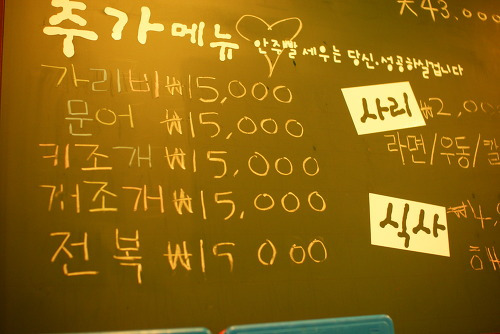 추가메뉴
안주빨 세우는 당신. 성공하실겁니다
가리비 ₩15,000
문어 ₩15,000
키조개 ₩15,000
조개 ₩15,000
전복 ₩15 000
大43.000
사리 ₩2,00
라면/우동/칼
식사 ₩4,